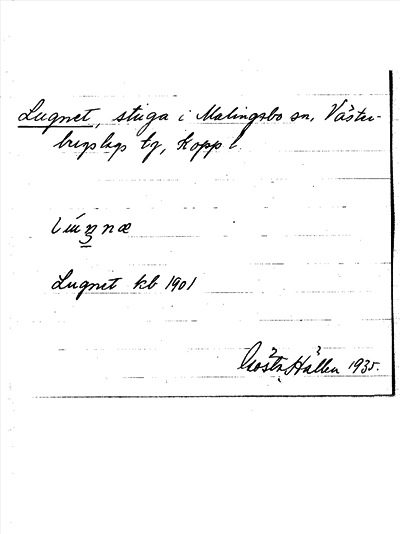 Lugnet, stuga i Malingsbo sn, Väster-
bergslags tg, Kopp l.
Lugnet kb 1901
Gösta Hallen 1935.